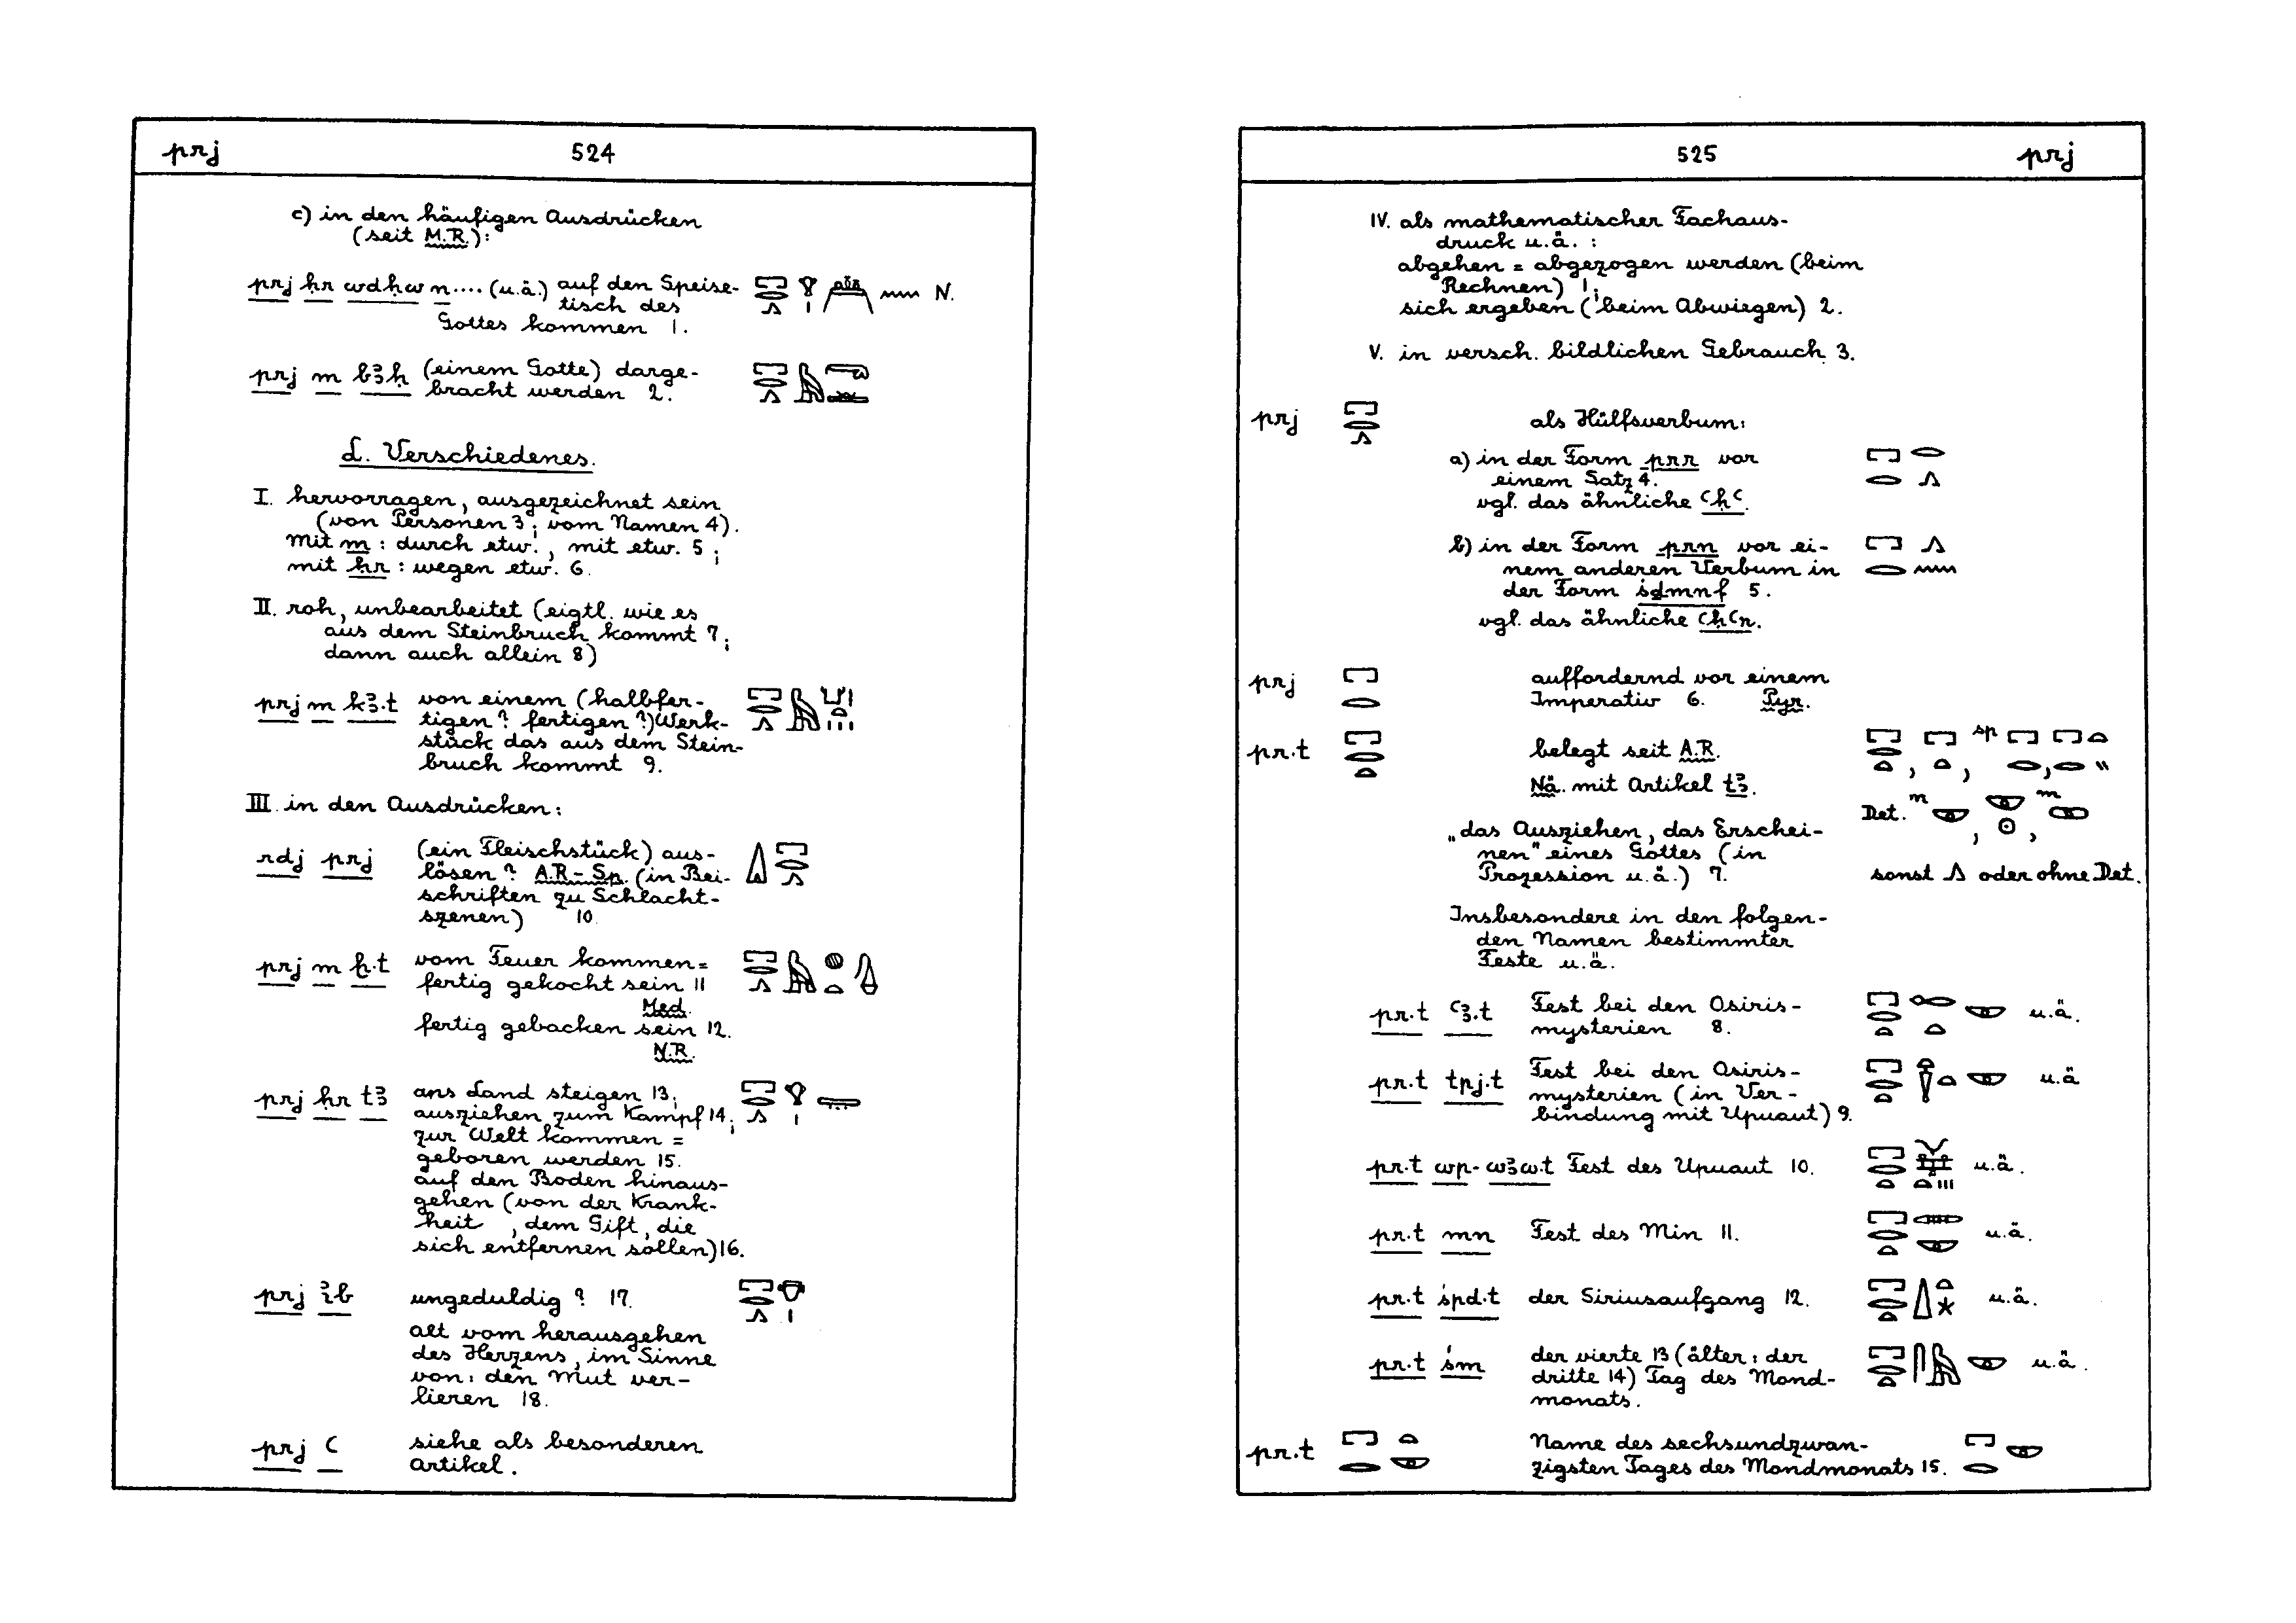 prj 524
c) in den häufigen Ausdrücken
(seit M.R.):
prj ḥr wdḥw n.... (u.ä.) auf den Speise-
tisch des
Gottes kommen 1.
N.
prj m bꜣḥ (einem Gotte) darge-
bracht werden 2.
L. Verschiedenes.
I. hervorragen, ausgezeichnet sein
(von Personen 3; vom Namen 4).
Mit m : durch etw., mit etw. 5;
mit ḥr : wegen etw. 6.
II. roh, unbearbeitet (eigtl. wie es
aus dem Steinbruch kommt 7;
dann auch allein 8)
prj m kꜣ.t von einem (halbfer-
tigen? fertigen?) Werk-
stück das aus dem Stein-
bruch kommt 9.
III. in den Ausdrücken:
rdj prj (ein Fleischstück) aus-
lösen? A.R.-Sp. (in Bei-
schriften zu Schlacht-
szenen) 10.
prj m ḫ.t vom Feuer kommen =
fertig gekocht sein 11
Med.
fertig gebacken sein 12.
N.R.
prj ḥr tꜣ ans Land steigen 13;
ausziehen zum Kampf 14;
zur Welt kommen =
geboren werden 15.
auf den Boden hinaus-
gehen (von der Krank-
heit, dem Gift, die
sich entfernen sollen) 16.
prj ꞽb ungeduldig? 17.
alt vom herausgehen
des Herzens, im Sinne
von: den Mut ver-
lieren 18.
prj ꜥ siehe als besonderen
Artikel.
525 prj
IV. als mathematischer Fachaus-
druck u.ä. :
abgehen = abgezogen werden (beim
Rechnen) 1;
sich ergeben (beim Abwiegen) 2.
V. in versch. bildlichen Gebrauch 3.
prj als Hülfsverbum:
a) in der Form prr vor
einem Satz 4.
vgl. das ähnliche ꜥḥꜥ.
b) in der Form prn vor ei-
nem anderen Verbum in
der Form śḏmnf 5.
vgl. das ähnliche ꜥḥꜥn.
prj auffordernd vor einem
Imperativ 6. Pyr.
pr.t belegt seit A.R.
Nä. mit Artikel tꜣ.
sp
Det. m m
sonst oder ohne Det.
„das Ausziehen, das Erschei-
nen" eines Gottes (in
Prozession u.ä.) 7.
Insbesondere in den folgen-
den Namen bestimmter
Feste u.ä.
pr.t ꜥꜣ.t Fest bei den Osiris-
mysterien 8. u.ä.
pr.t tpj.t Fest bei den Osiris-
mysterien (in Ver-
bindung mit Upuaut) 9. u.ä
pr.t wp-wꜣw.t Fest des Upuaut 10. u.ä.
pr.t mn Fest des Min 11. u.ä.
pr.t śpd.t der Siriusaufgang 12. u.ä.
pr.t śm der vierte 13 (älter: der
dritte 14) Tag des Mond-
monats. u.ä.
pr.t Name des sechsundzwan-
zigsten Tages des Mondmonats 15.